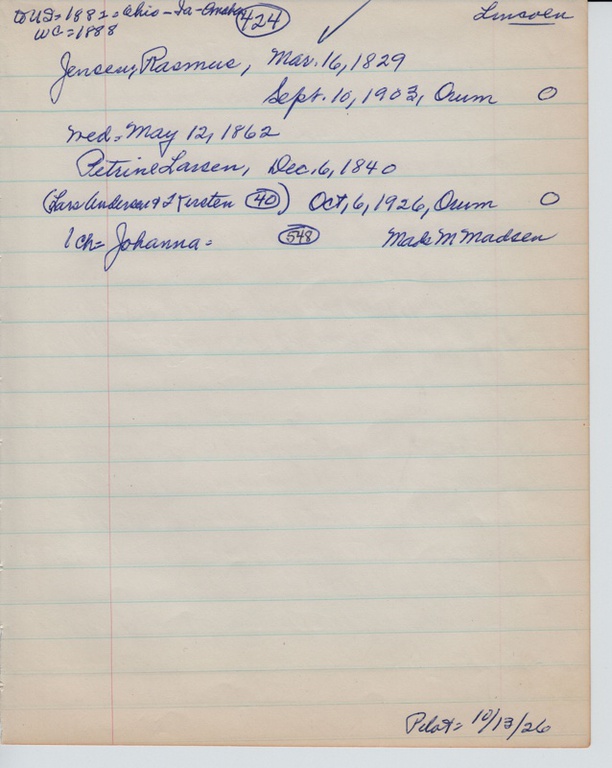 to US = 1882 = Ohio - Ia - Omaha 424 Lincoln
WC = 1888
Jensen, Rasmus, Mar. 16, 1829
Sept. 10, 1903, Orum O
Wed = May 12, 1862
Petrine Larsen, Dec. 6, 1840
(Lars Andersen & Kirsten 40) Oct, 6, 1926, Orum O
1 ch = Johanna = 548 Mads M Madsen
Pilot = 10/13/26